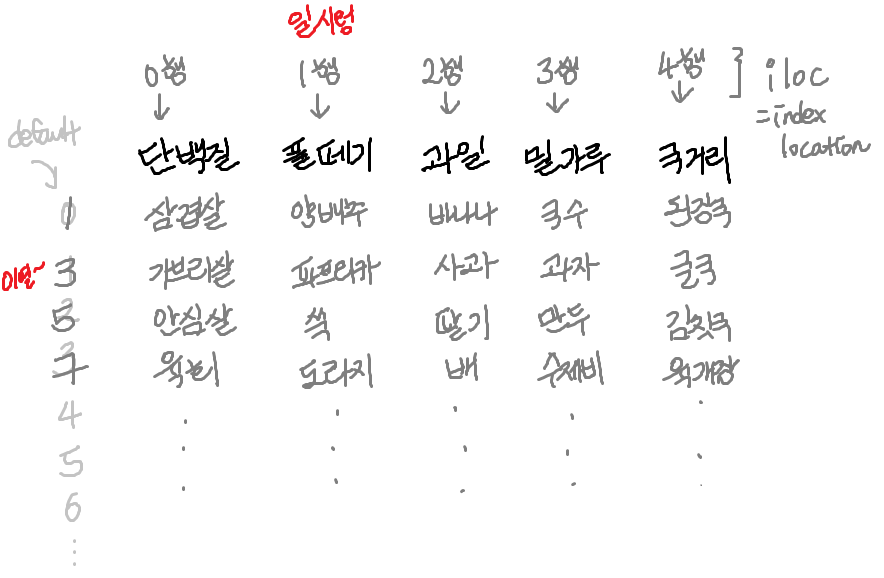 일시렁
0행 1행 2행 3행 4행 } iloc
=index
location
default
단백질 풀떼기 과일 밀가루 국거리
0 삼겹살 알배추 바나나 국수 된장국
이열~ 3 가브리살 파프리카 사과 과자 굴국
5 안심살 쑥 딸기 만두 김칫국
7 육회 도라지 배 수제비 육개장
4
5
6